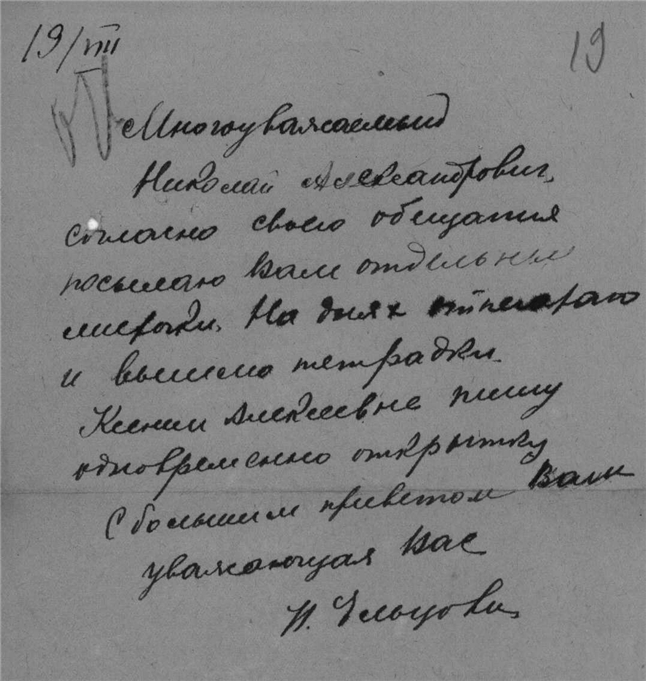 19/VIII
19
Многоуважаемый
Николай Александрович,
согласно своего обещания
посылаю вам отдельные
листочки. На днях отпечатаю
и вышлю тетрадки.
Ксении Алексеевне пишу
одновременно открытку
С большим приветом Вам
уважающая вас